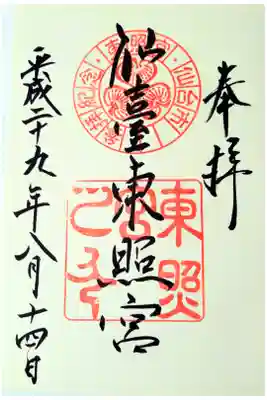 奉拝
仙臺東照宮
平成二十九年八月十四日
東照